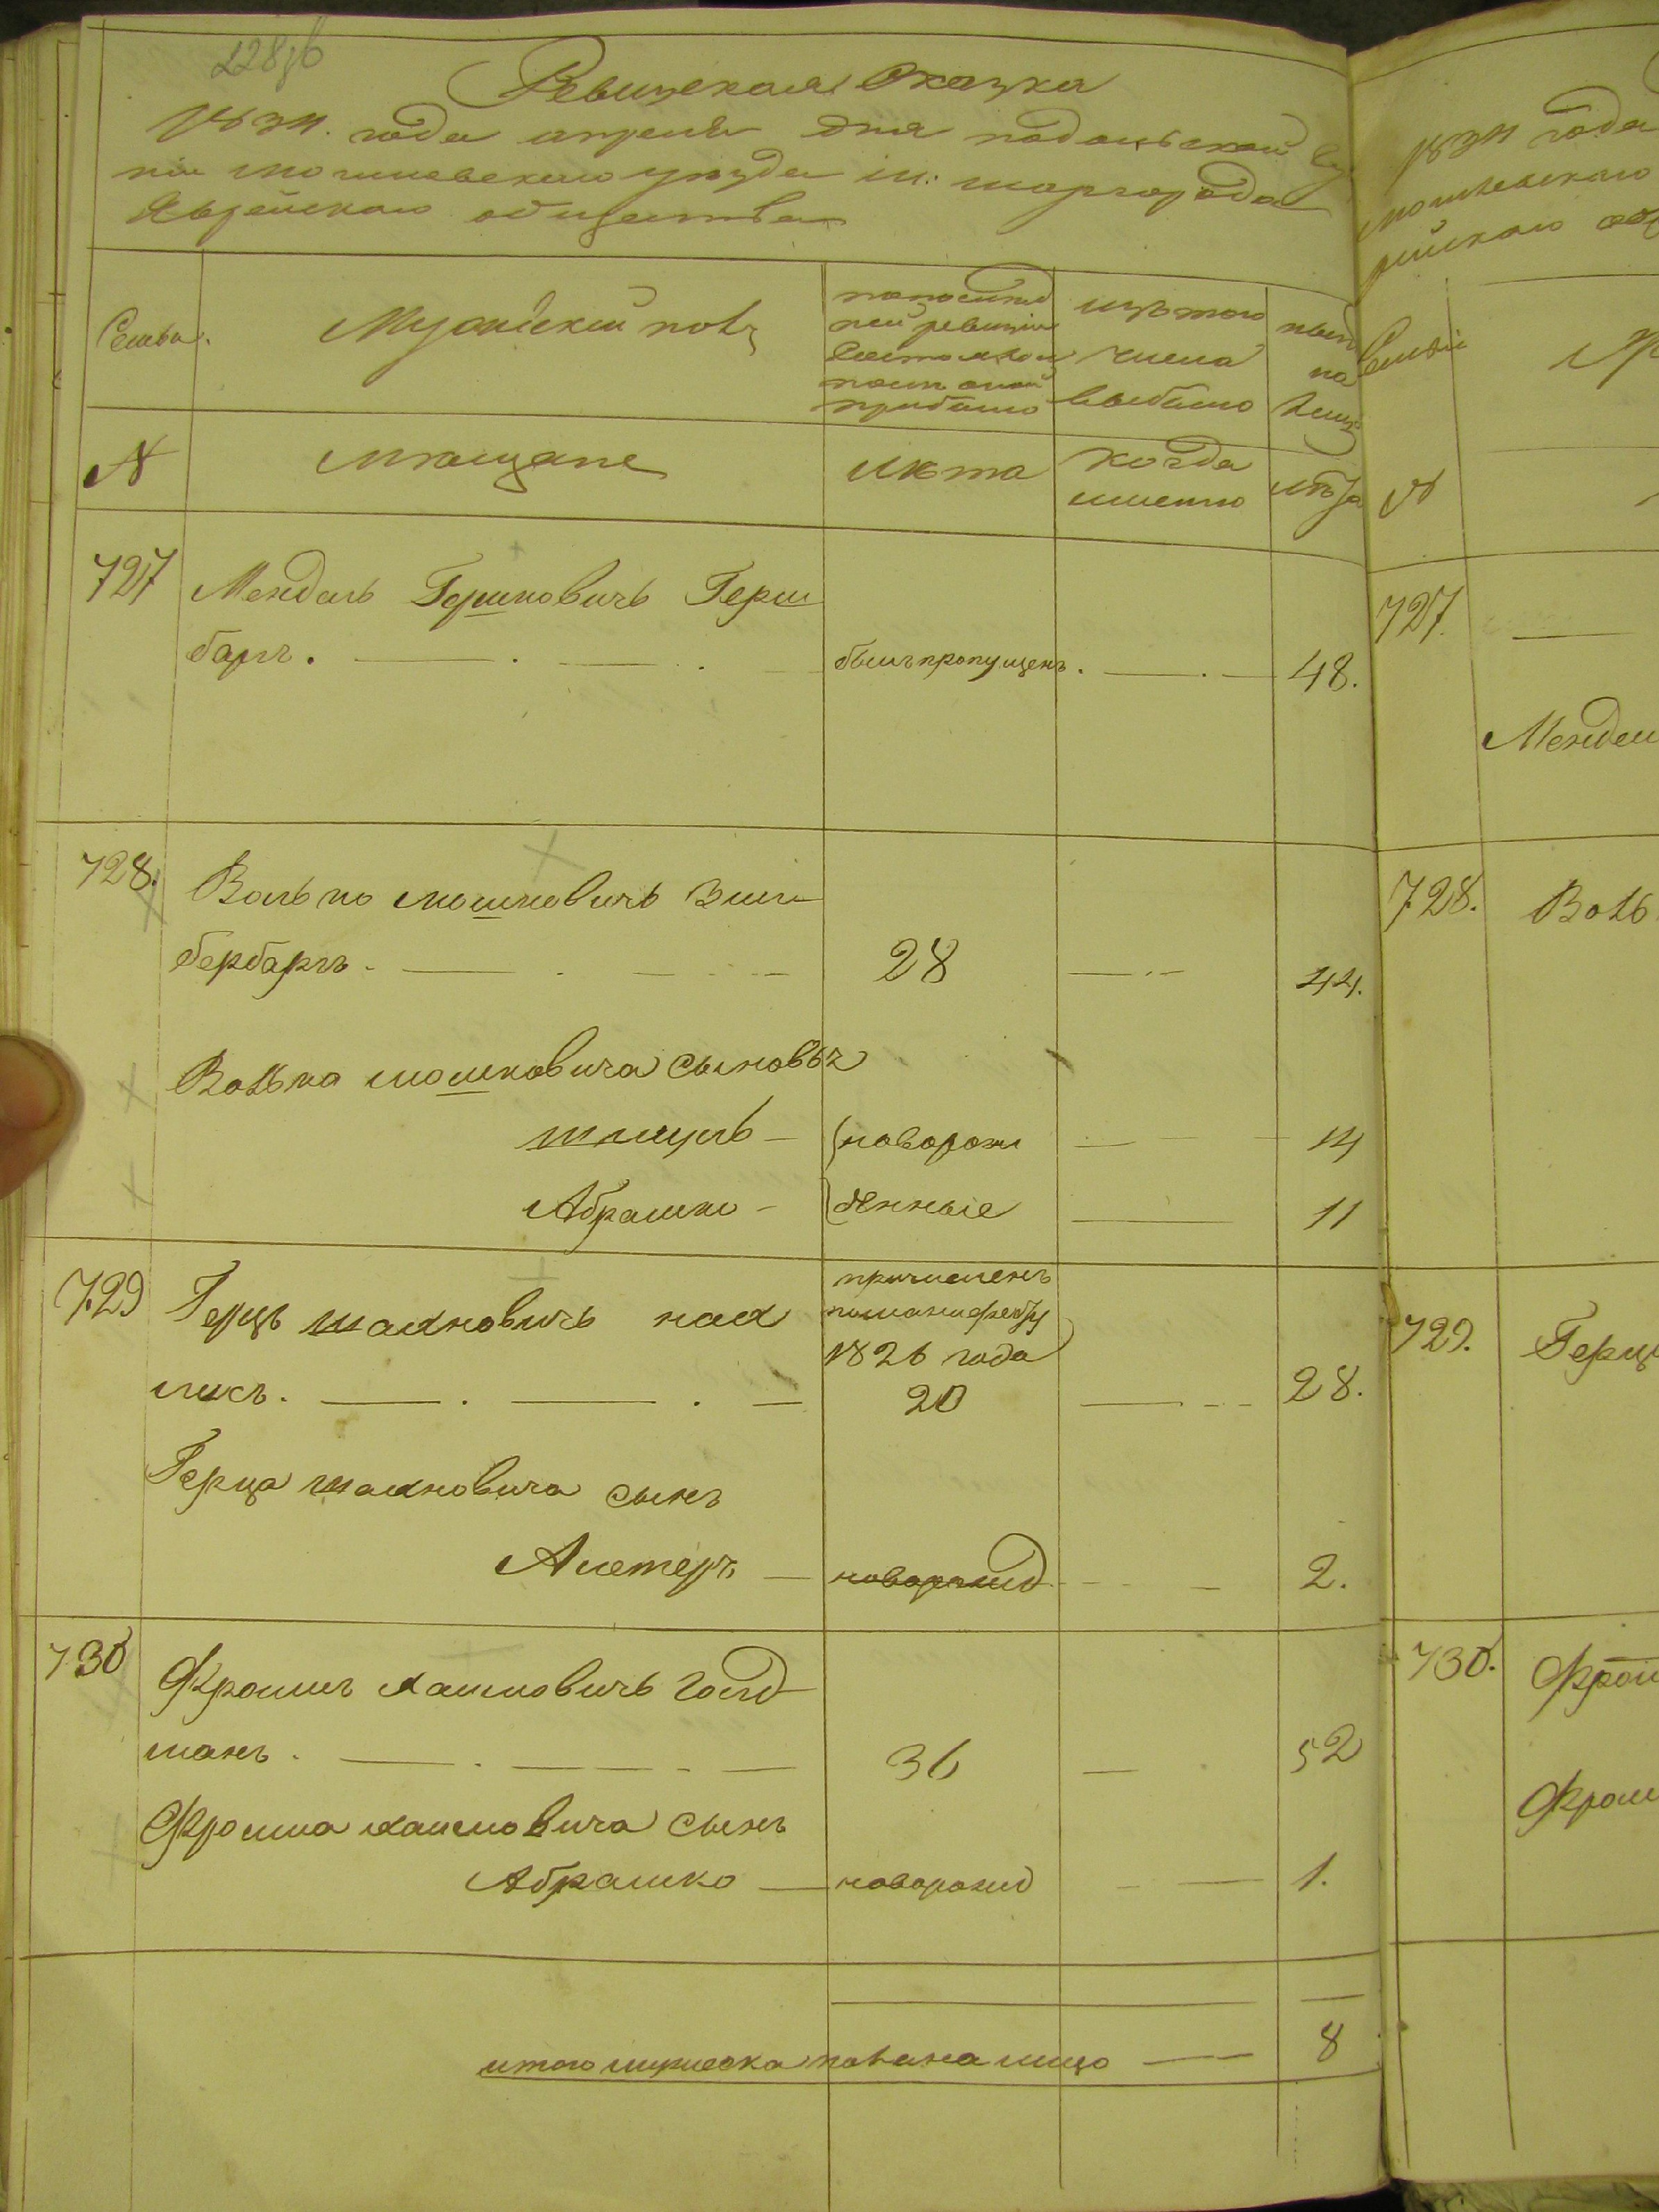 228об
Ревизская Сказка
1834. года апреля дня подольской гу
нии могилевскаго уезда м: шаргорода
Еврейскаго общества
Семьи.
Мужескій полъ
по последней
ревизіи
состояло и
после оной
прибыло
изъ того
числа
выбыло
ныне
на
лицо
N
мещане
лета
когда
именно
лета
727
Мендель Гершковичъ Герш
барг. былъ пропущенъ. 48.
728.
Волько мошковичъ Зиль
бербаргъ. 28 44.
Волька мошковича сыновья
шмуль новорож 14
Абрашко денные 11
729
Герцъ шахновичъ
причисленъ
по манифесту
1826 года
20 28.
Герца шахновича сынъ
Алетеръ новорожд 2.
730
Фроимъ хаимовичъ Голд
манъ. 36 52
Фроима хаимовича сынъ
Абрашко новорожд 1.
итого мужеска пола на лицо 8
1834 года
могилевскаго
рейскаго общ
Семьи
N
727.
Мендел
728. Воль
729. Герц
730. Фрои
Фроим